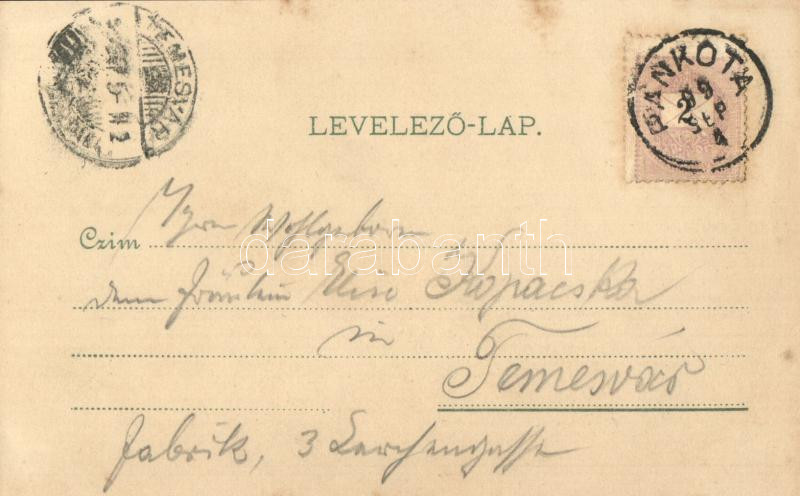 TEMESVÁR
PANKOTA
99
SEP
4
2
LEVELEZŐ-LAP.
Czim Ihrer Wohlgeboren
dem Fräulein Elise Kopacska
in
Temesvár
Fabrik, 3 Lerchengasse
darabanth